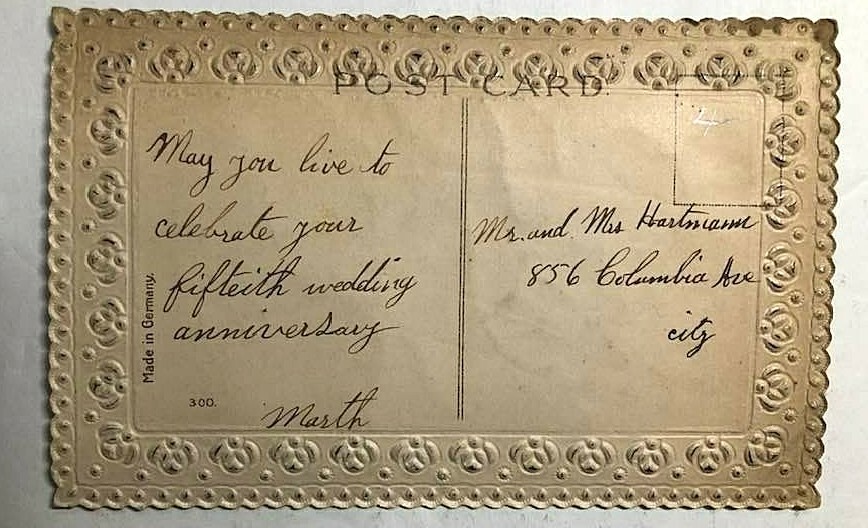 POST CARD
4
May you live to
celebrate your
fifteith wedding
anniversary
Marth
Made in Germany.
300.
Mr. and Mrs Hartmann
856 Columbia Ave
city